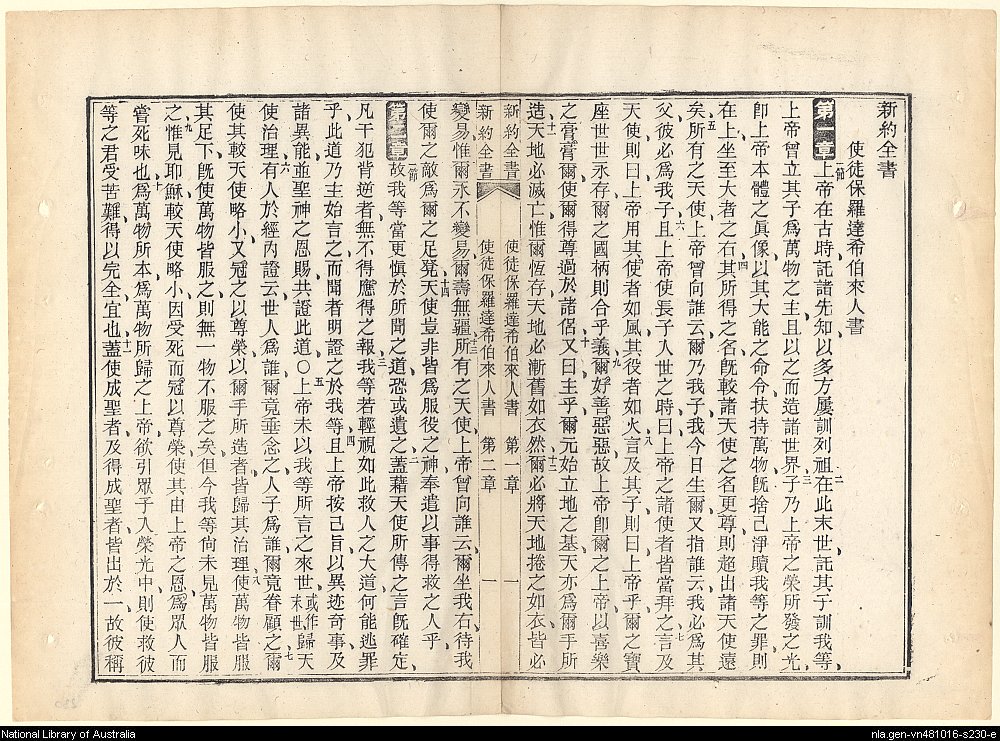 新約全書
使徒保羅達希伯來人書
第一章 一節上帝在古時託諸先知以多方屢訓列祖二在此末世託其子訓我等
上帝曾立其子爲萬物之主且以之而造諸世界三子乃上帝之榮所發之光
卽上帝本體之眞像以其大能之命令扶持萬物旣捨己淨贖我等之罪則
在上坐至大者之右四其所得之名旣較諸天使之名更尊則超出諸天使遠
矣五所有之天使上帝曾向誰云爾乃我子我今日生爾又指誰云我必爲其
父彼必爲我子六且上帝使長子入世之時曰上帝之諸使者皆當拜之七言及
天使則曰上帝用其使者如風其役者如火八言及其子則曰上帝乎爾之寶
座世世永存爾之國柄則合乎義九爾好善惡惡故上帝卽爾之上帝以喜樂
之膏膏爾使爾得尊過於諸侶十又曰主乎爾元始立地之基天亦爲爾手所
造十一天地必滅亡惟爾恆存天地必漸舊如衣然十二爾必將天地捲之如衣皆必
新約全書 使徒保羅達希伯來人書 第一章 一
新約全書 使徒保羅達希伯來人書 第二章 一
變易惟爾永不變易爾壽無疆十三所有之天使上帝曾向誰云爾坐我右待我
使爾之敵爲爾之足凳十四天使豈非皆爲服役之神奉遣以事得救之人乎
第二章 一節故我等當更愼於所聞之道恐或遺之二蓋藉天使所傳之言旣確定
凡干犯背逆者無不得應得之報三我等若輕視如此救人之大道何能逃罪
乎此道乃主始言之而聞者明證之於我等四且上帝按己旨以異迹奇事及
諸異能並聖神之恩賜共證此道○五上帝未以我等所言之來世或作末世歸天
使治理六有人於經內證云世人爲誰爾竟垂念之人子爲誰爾竟眷顧之七爾
使其較天使略小又冠之以尊榮以爾手所造者皆歸其治理八使萬物皆服
其足下旣使萬物皆服之則無一物不服之矣但今我等尙未見萬物皆服
之九惟見耶穌較天使略小因受死而冠以尊榮使其由上帝之恩爲眾人而
嘗死味也十爲萬物所本爲萬物所歸之上帝欲引眾子入榮光中則使救彼
等之君受苦難得以完全宜也十一蓋使成聖者及得成聖者皆出於一故彼稱
National Library of Australia
nla.gen-vn481016-s230-e